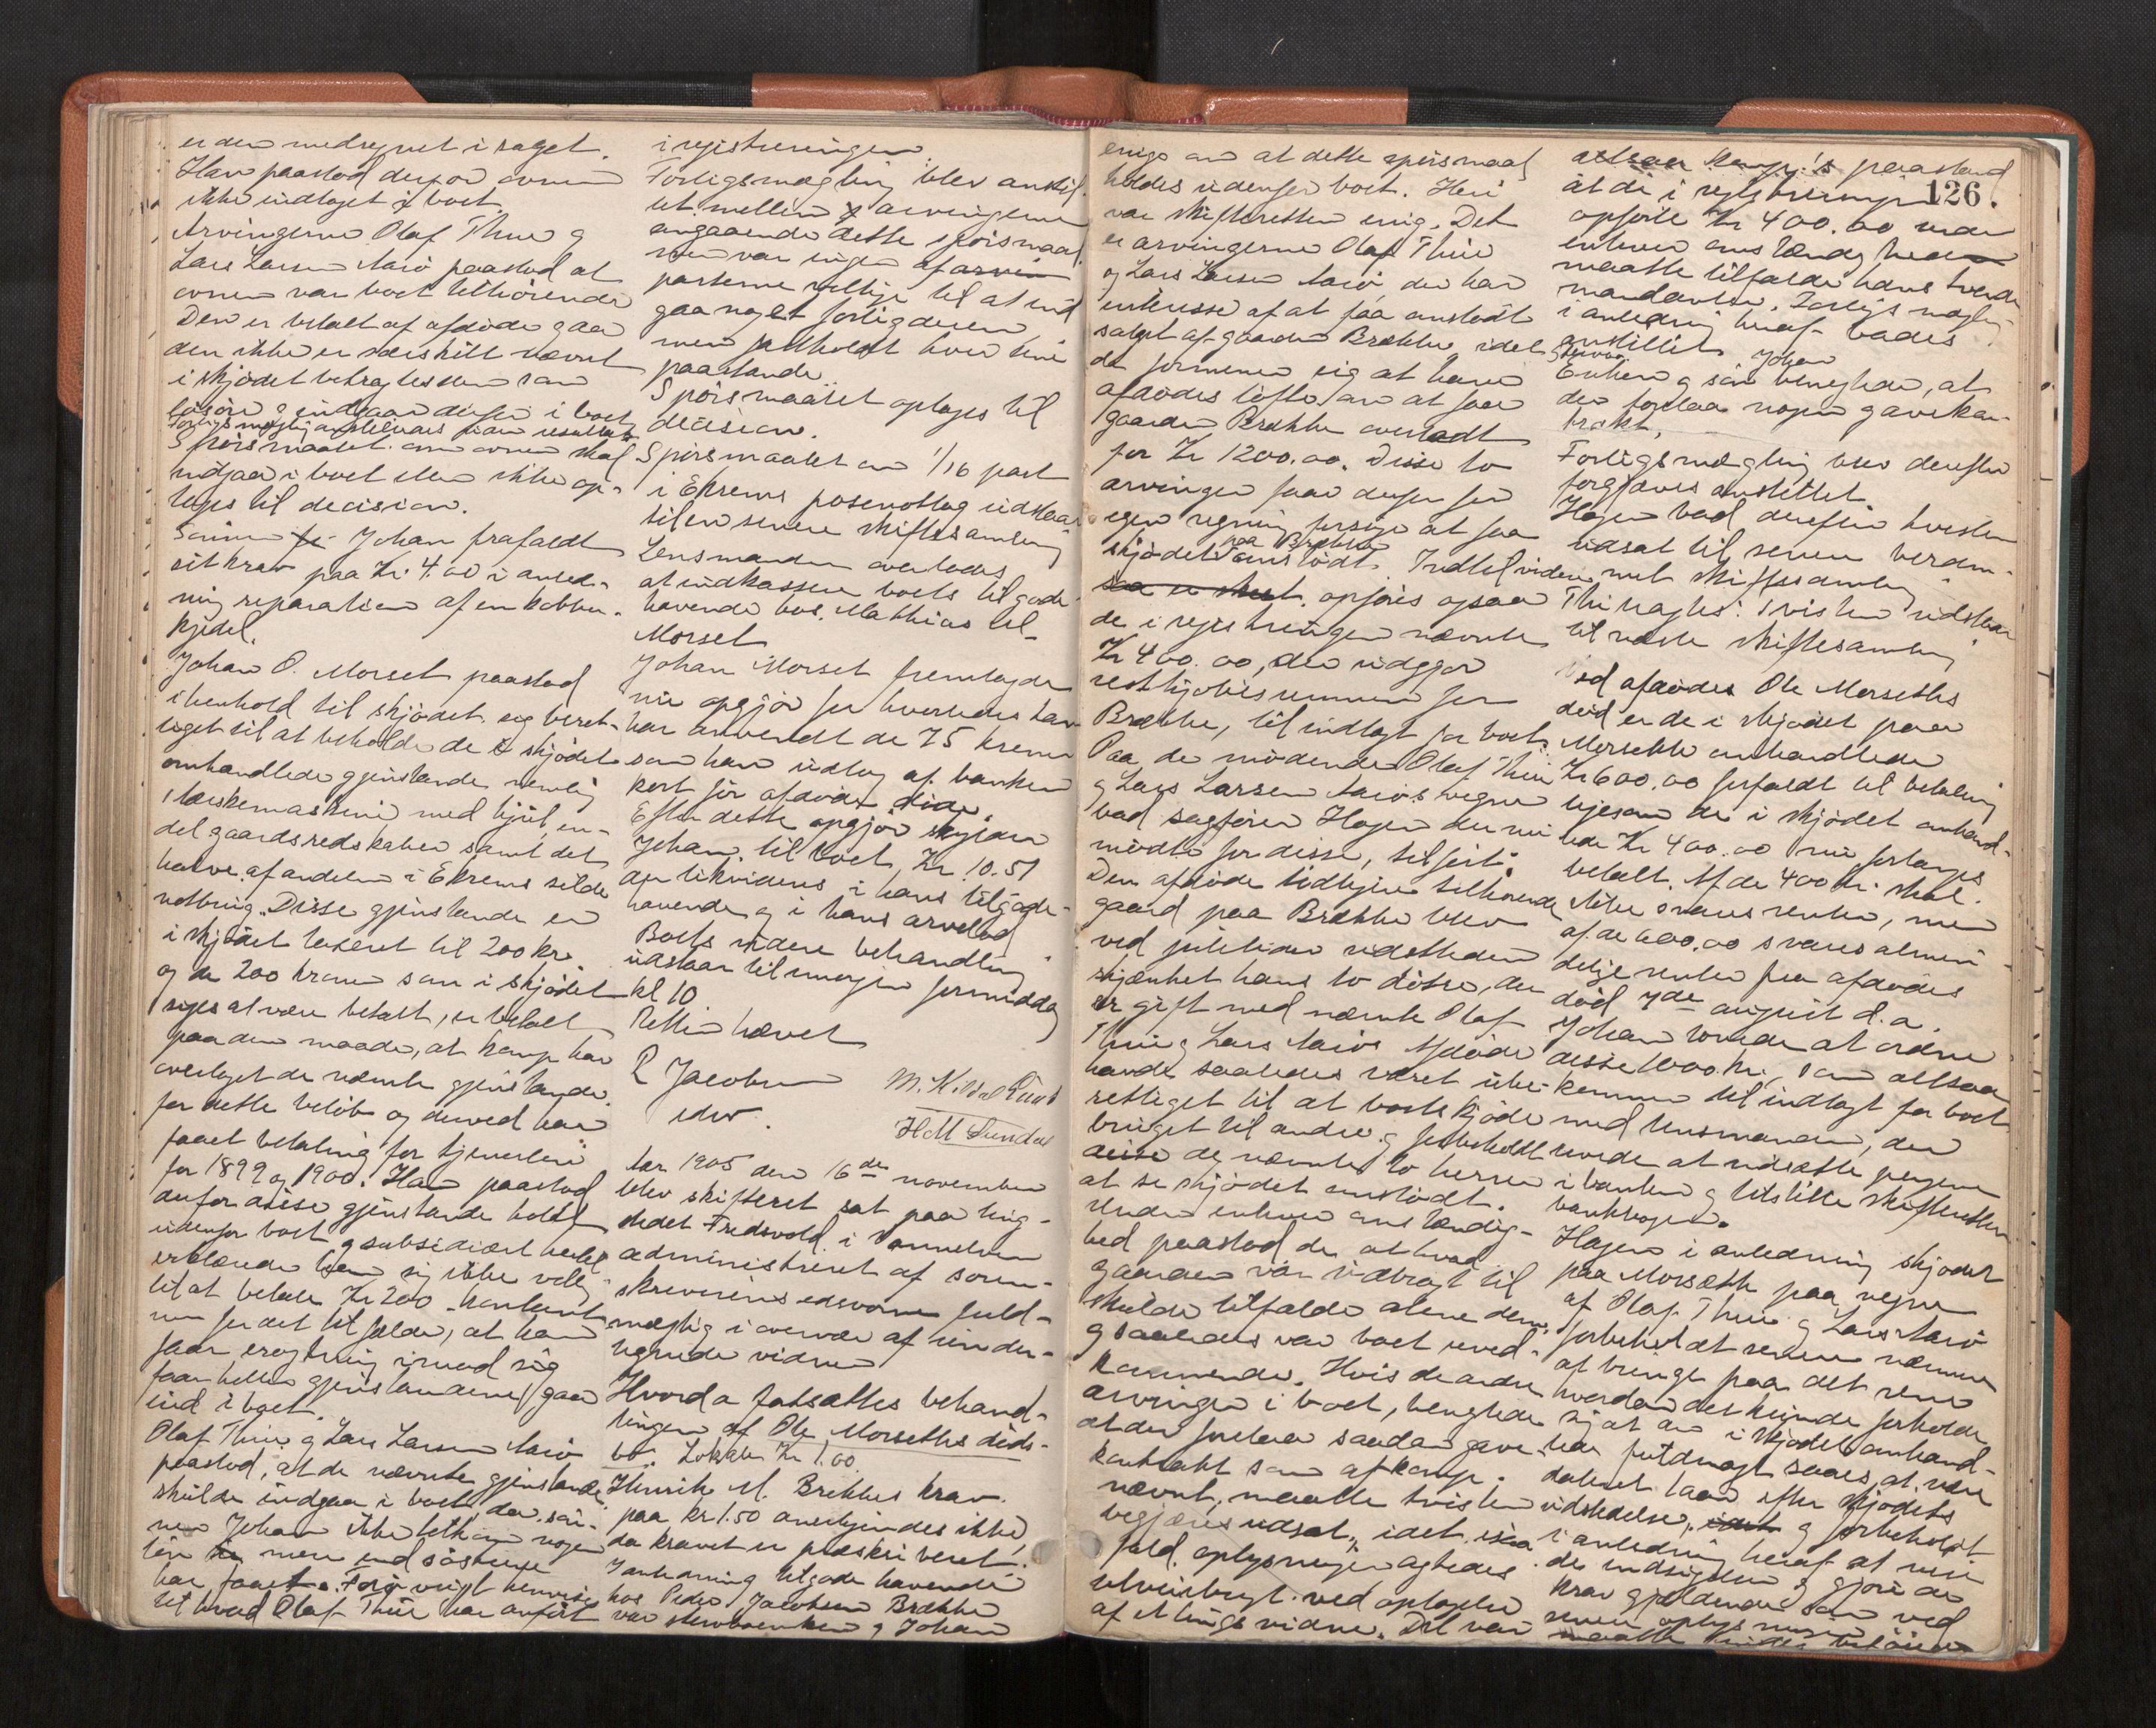 er den medregnet i salget.
Han paastod derfor ovnen
ikke indtaget i boet.
Arvingerne Olaf Thue og
Lars Larsen paastod at
ovnen var boet tilhørende
Den er betalt af afdøde og da
den ikke er særskilt nævnt
i skjødet betragtes den som
løsøre og indgaar derfor i boet
Forligsmægling anstilledes uden resultat
Spørsmaalet om ovnen skal
indgaa i boet eller ikke op-
tages til decision.
Sønnen Johan frafaldt
sit krav paa Kr. 4.00 i anled-
ning reparation af en kobber-
kjedel.
Johan O. Morset paastod
i henhold til skjødet sig beret-
tiget til at beholde de i skjødet
omhandlede gjenstande nemlig
1 tærskemaskine med hjul, en-
del gaardsredskaber samt det
halve af andelen i Ekrems silde
notbrug. Disse gjenstande er
i skjødet taxeret til 200 kr.
og de 200 kroner som i skjødet
siges at være betalt, er betalt
paa den maade, at han har
overtaget de nævnte gjenstande
for dette beløb og derved har
faaet betaling for tjenesten
for 1899 og 1900. Han paastod
derfor disse gjenstande holdt
udenfor boet og subsidiært
erklærede han sig ikke villig
til at betale Kr 200 kontant
men for det tilfælde, at han
faar erogtning imod sig
faar heller gjenstandene gaa
ind i boet.
Olaf Thue og Lars Larsen
paastod, at de nævnte gjenstande
skulde indgaa i boet da søn-
nen Johan ikke tilkom nogen
løn mere end søstrene
har faaet. Forøvrigt henvises
til hvad Olaf Thue har anført
i registreringen
Forligsmægling blev anstil-
let mellem arvingerne
angaaende dette spørsmaal
men var ingen af arvin
parterne villige til at ind
gaa noget forlig derom
men fastholdt hver sine
paastande.
Spørsmaalet optages til
decision.
Spørsmaalet om 1/16 part
i Ekrems posenotlag udstaar
til en senere skiftesamling
Lensmanden overlodes
at indkassere boets tilgode-
havende hos Mathias
Morset
Johan Morset fremlagde
nu opgjør for hvorledes han
har anvendt de 75 kroner
som han udtog af banken
kort før afdøde døde.
Efter dette opgjør skylder
Johan til boet Kr. 10.51
der likvideres i hans tilgode-
havende og i hans arvelod
Boets videre behandling
udstaar til imorgen formiddag
kl 10
Retten hævet
R Jacobsen
edsv.
M. K.
H M Sundal
Aar 1905 den 16de november
blev skifteret sat paa ting-
stedet Fredsvold i Vannelven
administreret af soren-
skriverens edsvorne fuld-
mægtig i overvær af under-
tegnede vidner
Hvorda fortsattes behand-
lingen af Ole Morseths døds-
bo. Lokale Kr 1.00.
Henrik M. Brekkes krav
paa kr 1.50 anerkjendes ikke,
da kravet er præskriberet.
I anledning tilgode havende
hos Peder Jacobsen Brekke
var sterboenken og Johan
126.
enige om at dette spørsmaal
holdes udenfor boet. Heri
var skifteretten enig. Det
er arvingerne Olaf Thue
og Lars Larsen der har
interesse af at faa omstødt
salget af gaarden Brekke idet
de formener sig at have
afdødes løfte om at faa
gaarden Brekke overladt
for Kr 1200.00. Disse to
arvinger faar derfor for
egen regning forsøge at faa
skjødet paa Brekke omstødt. Indtil videre
saa er skeet opføres ogsaa
de i registreringen nævnte
Kr 400.00, der udgjør
restkjøbesummen for
Brekke, til indtægt for boet.
Paa de mødende Olaf Thue
og Lars Larsen vegne
bad sagfører Hagen der nu
mødte for disse, tilført:
Den afdøde tidligere tilhørende
gaard paa Brekke blev
ved udstedtes
skjænket hans to døtre, der
er gift med nævnte Olaf
Thue og Lars Afdøde
havde saaledes været ube-
rettiget til at bortskjøde
bruget til andre og forbeholdt
disse de nævnte to herrer
at se skjødet omstødt.
Under enhver omstændig-
hed paastod de at hvad
gaarden var indbragt til
skulde tilfalde alene dem
og saaledes var boet uved-
kommende. Hvis de andre
arvinger i boet, benegtede
at der forelaa saadan gave-
kontrakt som af
nævnt, maatte tvisten
begjæres udsat, idet
fuld oplysninger agtedes
tilveiebragt ved optagelse
af tingsvidne. Det var
altsaa paastand
at de i registreringen
opførte Kr 400.00 under
enhver omstændighed
maatte tilfalde hans tvende
mandanter. Forligsmægling
i anledning heraf bades
anstillet. Johan
Enken og søn benegtede, at
der forelaa nogen gavekon-
trakt.
Forligsmægling blev derefter
forgjæves anstillet.
Hagen bad derefter tvisten
udsat til senere beram-
met skiftesamling
Thi vagtes: Tvisten udstaar
til næste skiftesamling
Ved afdødes Ole Morseths
død er de i skjødet paa
Morseth omhandlede
Kr 600.00 forfaldt til betaling
ligesom de i skjødet omhand-
lede Kr 400.00 nu forlanges
betalt. Af de 400 kr. skal
ikke svares renter, men
af de 600.00 svares almin-
delige renter fra afdødes
død 7de august d.a.
Johan lovede at ordne
disse 1000 kr., som altsaa
kommer til indtægt for boet
med lensmanden, der
lovede at indsætte pengene
i banken og tilstille skifteretten
bankbogen.
Hagen i anledning skjødet
paa Morseth paa vegne
af Olaf Thue og Lars
forbeholdt at senere nævne
at bringe paa det rene
hvordan det kunde forholde
sig at de i skjødet omhand-
lede
dateret Laan efter skjødets
udstedelse, idet og forbeholdt
i anledning heraf at
de indsigelser og gjøre de
krav gjældende som ved
senere oplysninger
maatte findes beføiet